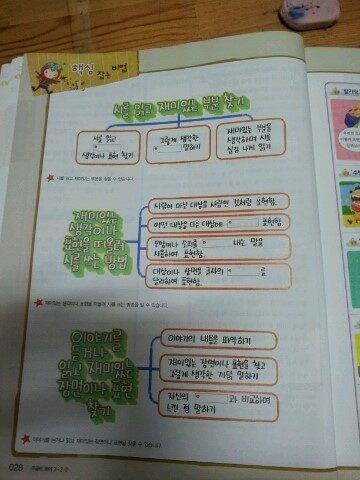 핵심 잡는 비법
시를 읽고 재미있는 부분 찾기
시를 읽고
생각이나 표현 찾기
그렇게 생각한
말하기
재미있는 부분을
생각하며 시를
실감 나게 읽기
시를 읽고 재미있는 부분을 찾을 수 있습니다.
재미있는
생각이나
표현을 떠올려
시를 쓰는 방법
사람이 아닌 대상을 사람인 것처럼 표현함.
어떤 대상을 다른 대상에 표현함.
모양이나 소리를 내는 말을
사용하여 표현함.
대상이나 장면을 글자의 를
달리하여 표현함.
재미있는 생각이나 표현을 떠올려 시를 쓰는 방법을 알 수 있습니다.
이야기를
듣거나
읽고 재미있는
장면이나 표현
찾기
이야기의 내용을 파악하기
재미있는 장면이나 표현을 찾고
그렇게 생각한 까닭 말하기
자신의 과 비교하여
느낀 점 말하기
이야기를 듣거나 읽고 재미있는 장면이나 표현을 찾을 수 있습니다.
028